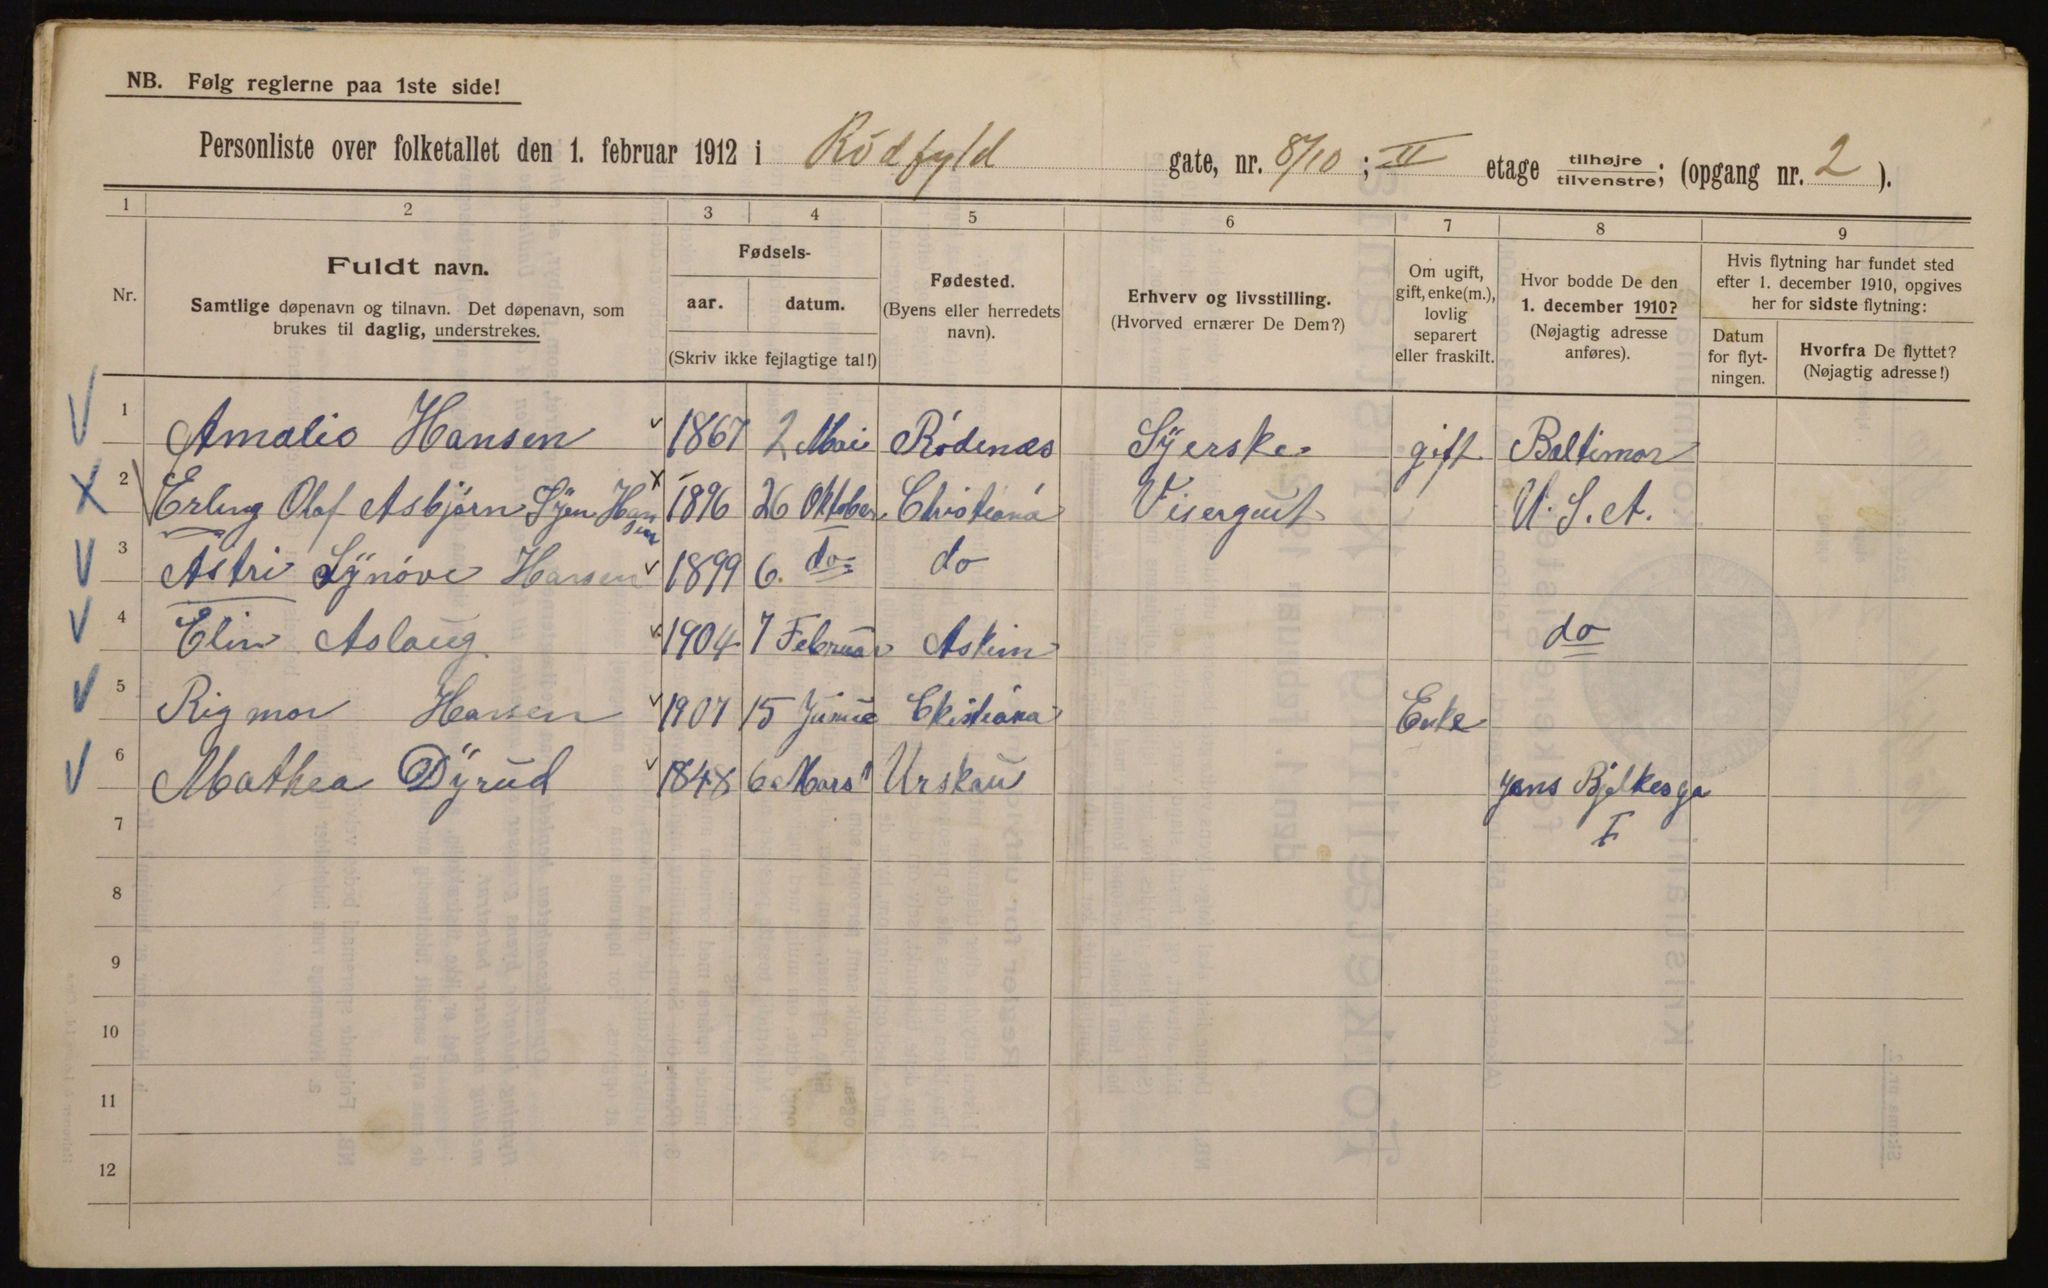 NB. Følg reglerne paa 1ste side!
Personliste over folketallet den 1. februar 1912 i Rödfyld gate, nr. 8/10 ; II etage tilhøjre/tilvenstre; (opgang nr. 2 ).
1 2 3 4 5 6 7 8 9
Nr.
Fuldt navn.
Samtlige døpenavn og tilnavn. Det døpenavn, som
brukes til daglig, understrekes.
Fødsels-
aar. datum.
(Skriv ikke fejlagtige tal!)
Fødested.
(Byens eller herredets
navn).
Erhverv og livsstilling.
(Hvorved ernærer De Dem?)
Om ugift,
gift, enke(m.),
lovlig
separert
eller fraskilt.
Hvor bodde De den
1. december 1910?
(Nøjagtig adresse
anføres).
Hvis flytning har fundet sted
efter 1. december 1910, opgives
her for sidste flytning:
Datum
for flyt-
ningen.
Hvorfra De flyttet?
(Nøjagtig adresse!)
1 Amalie Hansen 1867 2 Mai Rödenæs Syerske gift Baltimor
2 Erling Olaf Asbjörn Hansen 1896 26 Oktober Christiana Visergut U.S.A.
3 Astri Synöve Hansen 1899 6. do do
4 Elin Aslaug 1904 7 Februar Askim do
5 Rigmor Hansen 1907 15 Christiana Enke
6 Mathea Dyrud 1848 6 Mars Urskau Jens Bjelkesga
7 I
8
9
10
11
12